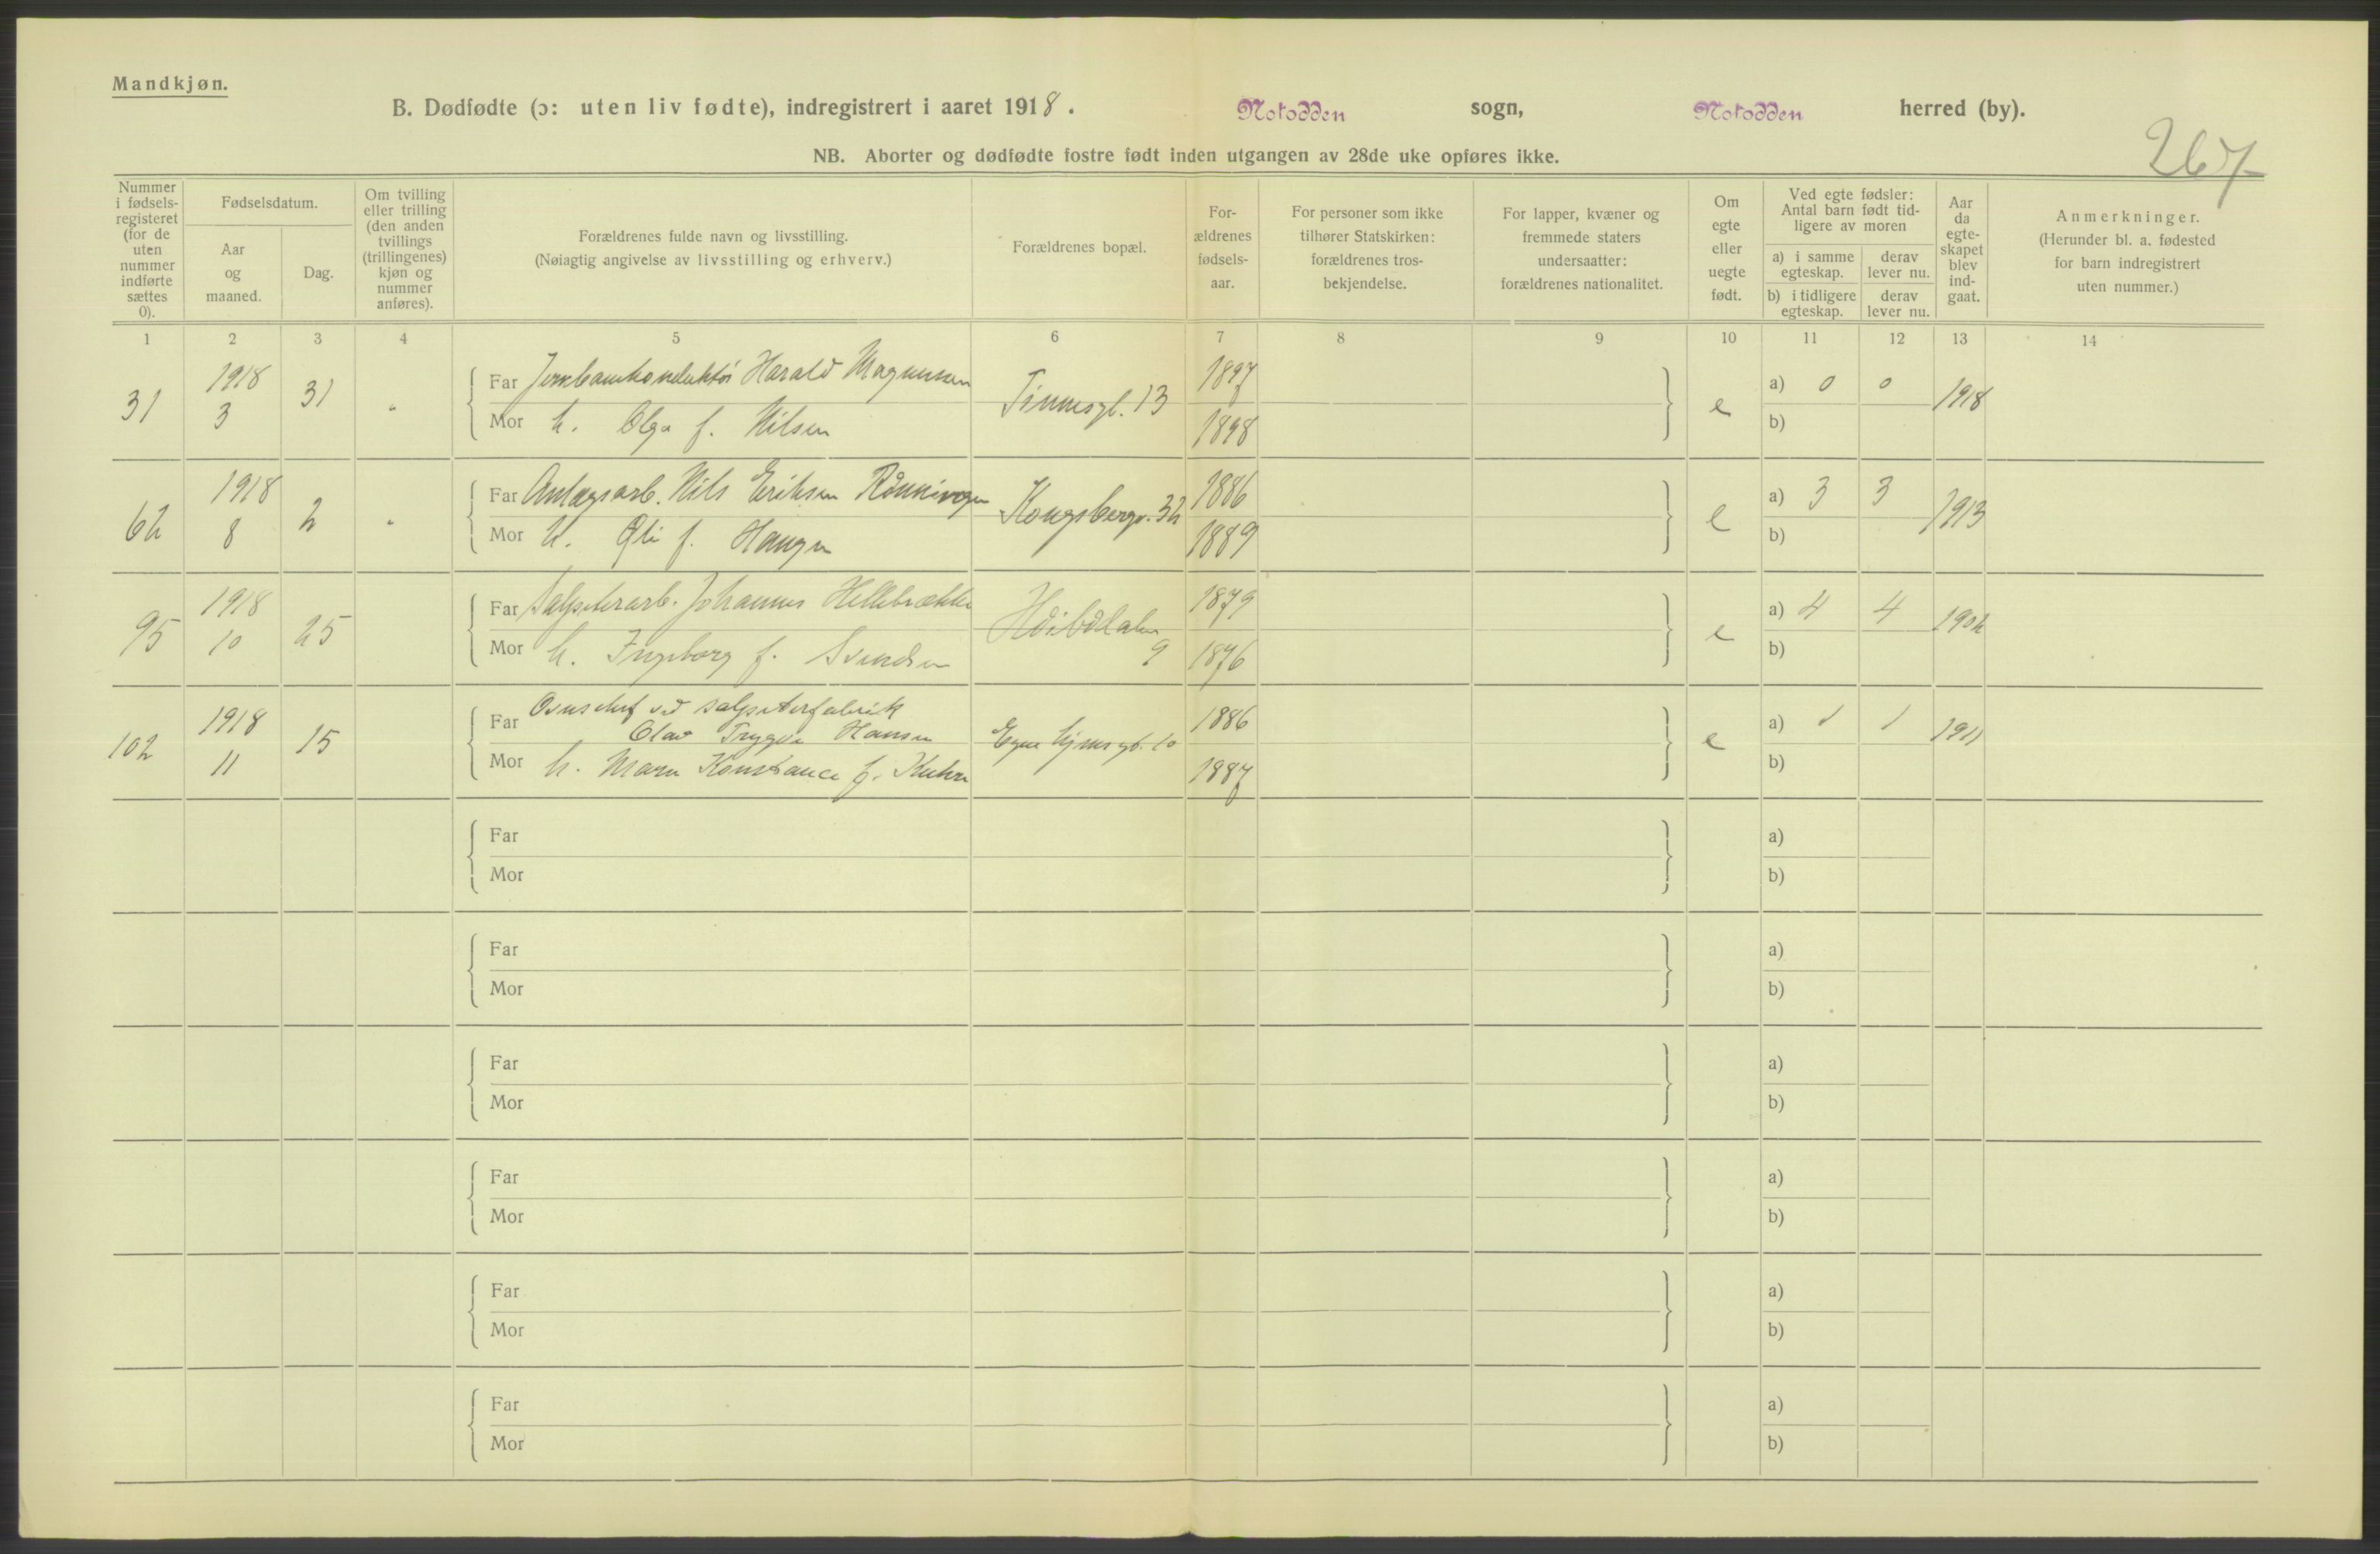 Mandkjøn.
B. Dødfødte (ɔ: uten liv fødte), indregistrert i aaret 1918. Notodden sogn, Notodden herred (by).
267
NB. Aborter og dødfødte fostre født inden utgangen av 28de uke opføres ikke.
Nummer i fødsels-registeret (for de uten nummer indførte sættes 0).
Fødselsdatum.
Aar og maaned.
Dag.
Om tvilling eller trilling (den anden tvillings (trillingenes) kjøn og nummer anføres).
Forældrenes fulde navn og livsstilling.
(Nøiagtig angivelse av livsstilling og erhverv.)
Forældrenes bopæl.
For-ældrenes fødsels-aar.
For personer som ikke tilhører Statskirken: forældrenes tros-bekjendelse.
For lapper, kvæner og fremmede staters undersaatter: forældrenes nationalitet.
Om egte eller uegte født.
Ved egte fødsler: Antal barn født tid-ligere av moren
a) i samme egteskap.
derav lever nu.
b) i tidligere egteskap.
derav lever nu.
Aar da egte-skapet blev ind-gaat.
Anmerkninger.
(Herunder bl. a. fødested for barn indregistrert uten nummer.)
1 2 3 4 5 6 7 8 9 10 11 12 13 14
31 1918 3 31 "
Far Jernbanekonduktør Harald Magnussen Tinnesgt. 13 1897
Mor h. Olga f. Nilsen 1898
e a) 0 0 1918
b)
62 1918 8 2 "
Far Anlægsarb. Nils Eriksen Rønningen Kongsbergv. 32 1886
Mor h. f. Haugen 1889
e a) 3 3 1913
b)
95 1918 10 25
Far Salpeterarb. Johannes Hellebrække 9 1879
Mor h. Ingeborg f. Svendsen 1876
e a) 4 4 1902
b)
102 1918 11 15
Far Ovnschef ved salpeterfabrik
Olav Trygve Hansen Egne hjemsgt. 10 1886
Mor h. Maren Konstance f. 1887
e a) 1 1 1911
b)
Far a)
Mor b)
Far a)
Mor b)
Far a)
Mor b)
Far a)
Mor b)
Far a)
Mor b)
Far a)
Mor b)